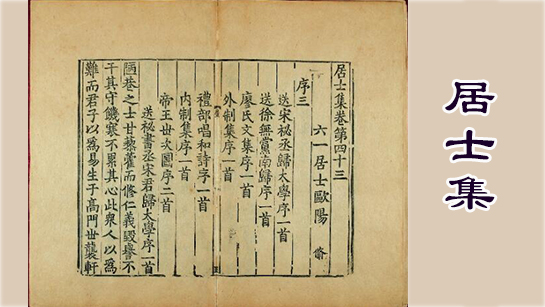 居士集卷第四十三
六一居士歐陽脩
序三
送宋秘丞歸太學序一首
送徐無黨南歸序一首
廖氏文集序一首
外制集序一首
禮部唱和詩序一首
內制集序一首
帝王世次圖序二首
送祕書丞宋君歸太學序一首
陋巷之士甘藜藿而脩仁義毀譽不
干其守饑寒不累其心此衆人以爲
難而君子以爲易生于高門世襲軒
居士集